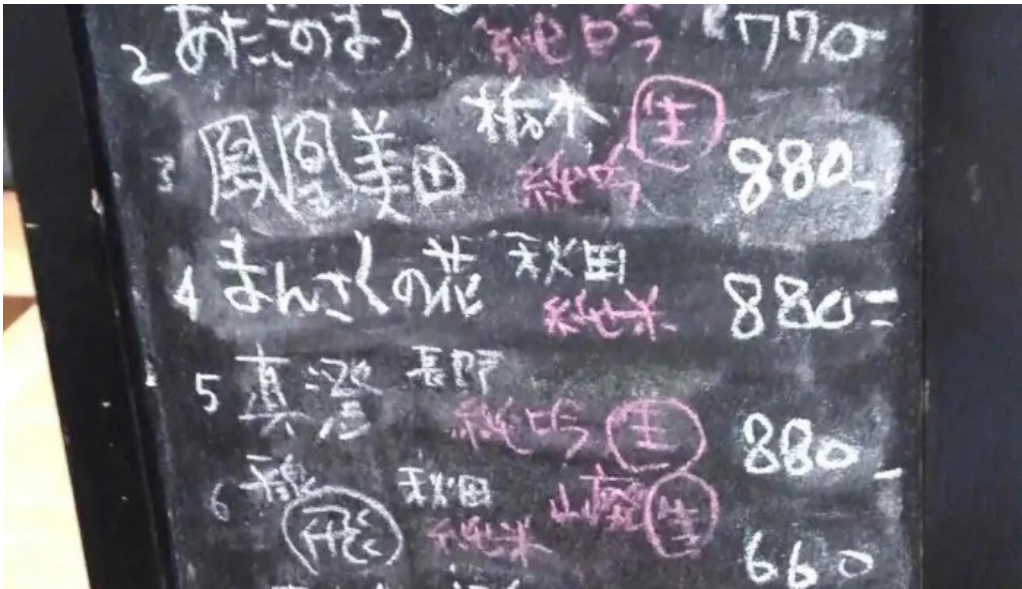 2 あたごのまつ 純吟 770
3 鳳凰美田 栃木 純吟 生 880
4 まんさくの花 秋田 純米 880
5 真澄 長野 純吟 生 880
6 秋田 純米 山廃 生 660